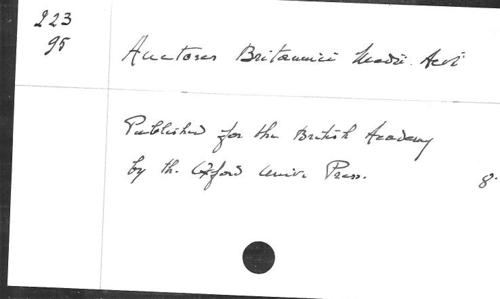 223
95
Auctores Britannici Medii Aevi
Published for the British Academy
by th. Oxford Univ. Press.
8.